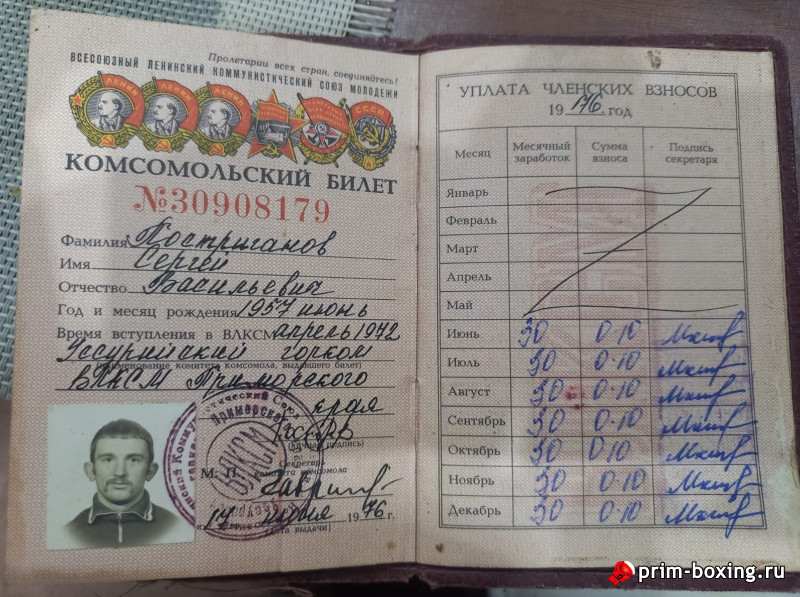 Пролетарии всех стран, соединяйтесь!
ВСЕСОЮЗНЫЙ ЛЕНИНСКИЙ КОММУНИСТИЧЕСКИЙ СОЮЗ МОЛОДЕЖИ
ЛЕНИН ЛЕНИН ЛЕНИН СССР
КОМСОМОЛЬСКИЙ БИЛЕТ
№30908179
Фамилия Постриганов
Имя Сергей
Отчество Васильевич
Год и месяц рождения 1957 июнь
Время вступления в ВЛКСМ апрель 1972
Уссурийский горком
(наименование комитета комсомола, выдавшего билет)
ВЛКСМ Приморского
края
(личная подпись)
М. П. Секретарь
комитета комсомола
«17» июня 1976 г.
(дата выдачи)
ВЛКСМ
УПЛАТА ЧЛЕНСКИХ ВЗНОСОВ
1976 год
Месяц Месячный заработок Сумма взноса Подпись секретаря
Январь
Февраль
Март
Апрель
Май
Июнь 30 0-10
Июль 30 0-10
Август 30 0-10
Сентябрь 30 0-10
Октябрь 30 0-10
Ноябрь 30 0-10
Декабрь 30 0-10
prim-boxing.ru